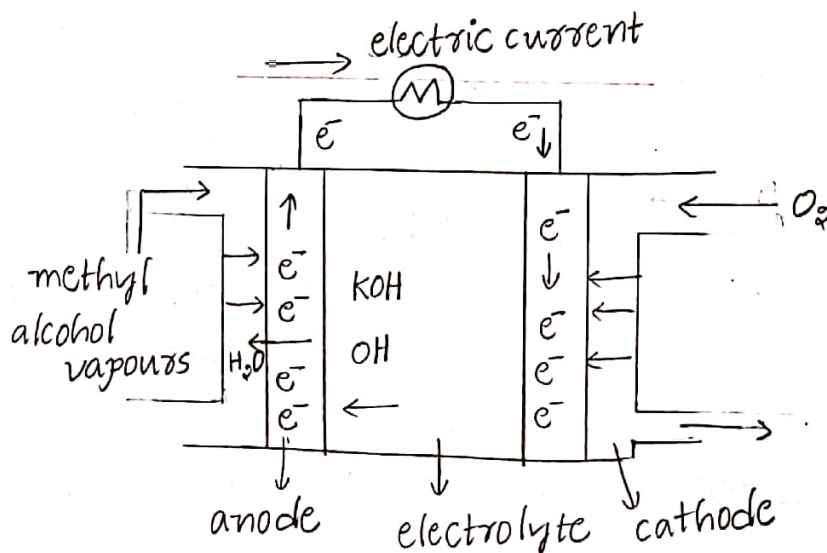 electric current
e⁻ e⁻
O₂
methyl
alcohol
vapours
H₂O
e⁻
e⁻
e⁻
e⁻
KOH
OH
e⁻
e⁻
e⁻
e⁻
anode
electrolyte
cathode